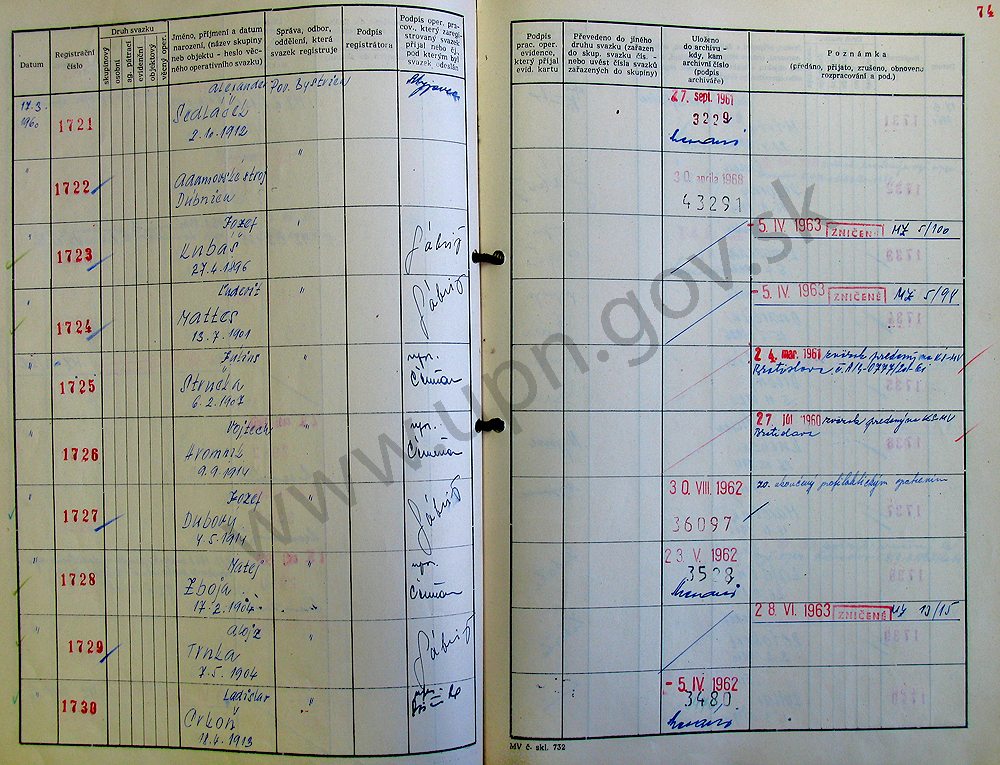 74
Datum
Registrační
číslo
Druh svazku
skupinový
osobní
ag. pátrací
evidenční
objektový
věcný oper.
Jméno, příjmení a datum
narození, (název skupiny
neb objektu - heslo věc-
ného operativního svazku)
Správa, odbor,
oddělení, která
svazek registruje
Podpis
registrátora
Podpis oper. pra-
cov., který zaregi-
strovaný svazek
přijal nebo čí.
pod kterým byl
svazek odeslán
Podpis
prac. oper.
evidence,
který přijal
evid. kartu
Převedeno do jiného
druhu svazku (zařazen
do skup. svazku čís. -
nebo uvést čísla svazků
zařazených do skupiny)
Uloženo
do archivu -
kdy, kam
archivní číslo
(podpis
archiváře)
Poznámka
(předáno, přijato, zrušeno, obnoveno
rozpracování a pod.)
17.3.
1960
1721
Alexander
Sedláček
2.10.1912
Pov. Bystrica
27. sept. 1961
3229
"
1722
Adamovské stroj
Dubnica
"
30. apríla 1968
43291
"
1723
Jozef
Kubaš
27.4.1896
"
Gábriš
- 5. IV. 1963 ZNIČENÉ MZ 5/100
"
1724
Ľudevít
Mattes
13.7.1901
"
Gábriš
- 5. IV. 1963 ZNIČENÉ MZ 5/98
"
1725
Július
Strnčka
6.2.1907
"
npr.
24. mar. 1961 zväzok predaný na KS-MV
Bratislava
"
1726
Vojtech
Hromník
9.9.1914
"
npr.
27. júl 1960 zväzok predaný na KS MV
Bratislava
"
1727
Jozef
Dubový
4.5.1914
"
Gábriš
30. VIII. 1962
36097
ukončený profilaktickým opatrením
"
1728
Matej
Zboja
17.2.1904
"
npr.
23. V. 1962
3528
"
1729
Alojz
Trnka
7.5.1904
"
Gábriš
28. VI. 1963 ZNIČENÉ MZ 13/15
"
1730
Ladislav
Crkoň
18.4.1913
"
- 5. IV. 1962
3480
MV č. skl. 732
www.upn.gov.sk